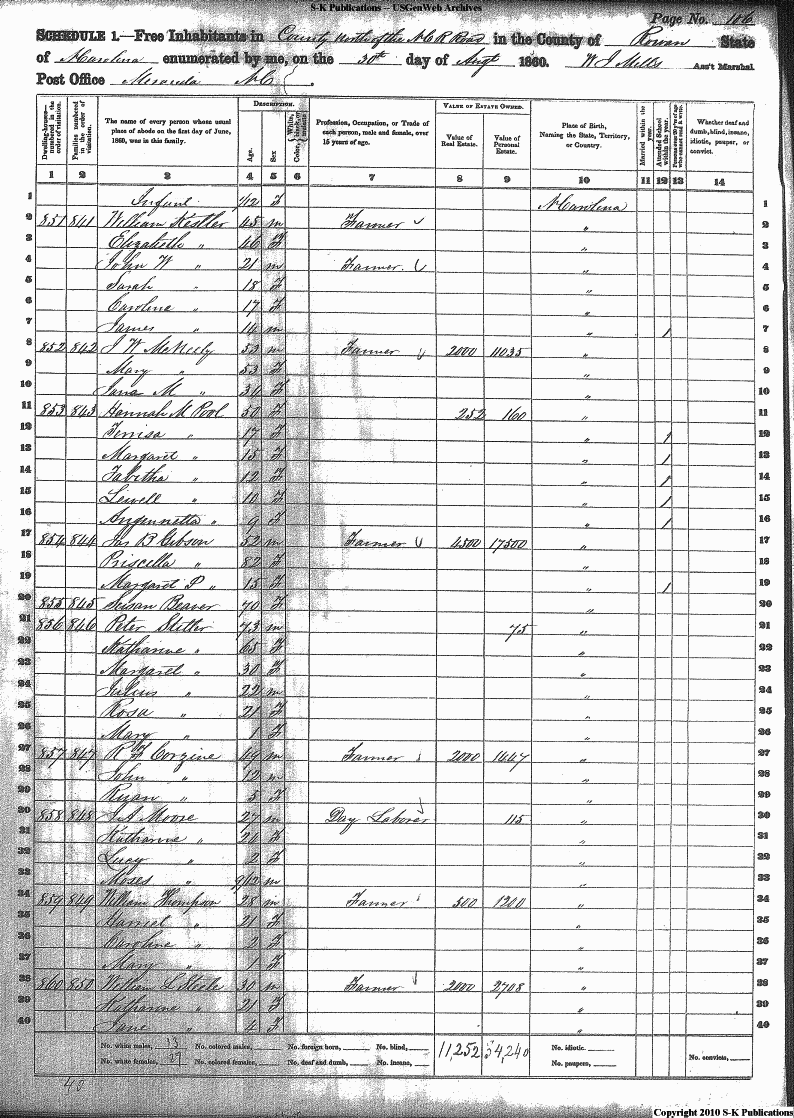 S-K Publications – USGenWeb Archives
Page No. 106
SCHEDULE 1.—Free Inhabitants in County North of the N C R Road in the County of Rowan State
of N Carolina enumerated by me, on the 30th day of Augt 1860. W J Mills Ass't Marshal.
Post Office Miranda N C
Dwelling-houses—numbered in the order of visitation.
Families numbered in the order of visitation.
The name of every person whose usual place of abode on the first day of June, 1860, was in this family.
DESCRIPTION.
Age.
Sex
Color,
Profession, Occupation, or Trade of each person, male and female, over 15 years of age.
VALUE OF ESTATE OWNED.
Value of Real Estate.
Value of Personal Estate.
Place of Birth, Naming the State, Territory, or Country.
Married within the year.
Attended School within the year.
Whether deaf and dumb, blind, insane, idiotic, pauper, or convict.
1 2 3 4 5 6 7 8 9 10 11 12 13 14
1 Infant /12 F N Carolina 1
2 851 841 William Kestler 45 m Farmer " 2
3 Elizabeth " 46 F " 3
4 John W " 21 m Farmer " 4
5 Sarah " 18 F " 5
6 Caroline " 17 F " 6
7 James " 14 m " / 7
8 852 842 J W McNeely 53 m Farmer 2000 11035 " 8
9 Mary " 53 F " 9
10 Jana M " 36 F " 10
11 853 843 Hannah M Pool 50 F 252 160 " 11
12 " 17 F / 12
13 Margaret " 15 F " / 13
14 Tabitha " 12 F " / 14
15 Lewell " 10 F " / 15
16 " 9 F " / 16
17 854 844 Jas B Gibson 52 m Farmer 4500 17500 " 17
18 Priscella " 82 F " 18
19 Margaret P " 15 F " / 19
20 855 845 Susan Beaver 70 F " 20
21 856 846 Peter 73 m 75 " 21
22 Katharine " 65 F " 22
23 Margaret " 30 F " 23
24 Julius " 22 m " 24
25 Rosa " 21 F " 25
26 Mary " 1 F " 26
27 857 847 R F Corzine 49 m Farmer 2000 1447 " 27
28 John " 12 m " 28
29 Ryan " 5 F " 29
30 858 848 A Moore 27 m Day Laborer 115 " 30
31 Katharine " 26 F " 31
32 Lucy " 2 F " 32
33 Moses " 9/12 m " 33
34 859 849 William Thompson 28 m Farmer 500 1200 " 34
35 Harriet " 21 F " 35
36 Caroline " 2 F " 36
37 Mary " 1 F " 37
38 860 850 William L Steele 30 m Farmer 2000 2708 " 38
39 Katharine " 21 F " 39
40 Jane " 4 F " 40
No. white males, 13 No. colored males, No. foreign born, No. blind, 11,252 34,240 No. idiotic.
No. white females, 27 No. colored females, No. deaf and dumb, No. insane, No. paupers, No. convicts,
40
Copyright 2010 S-K Publications